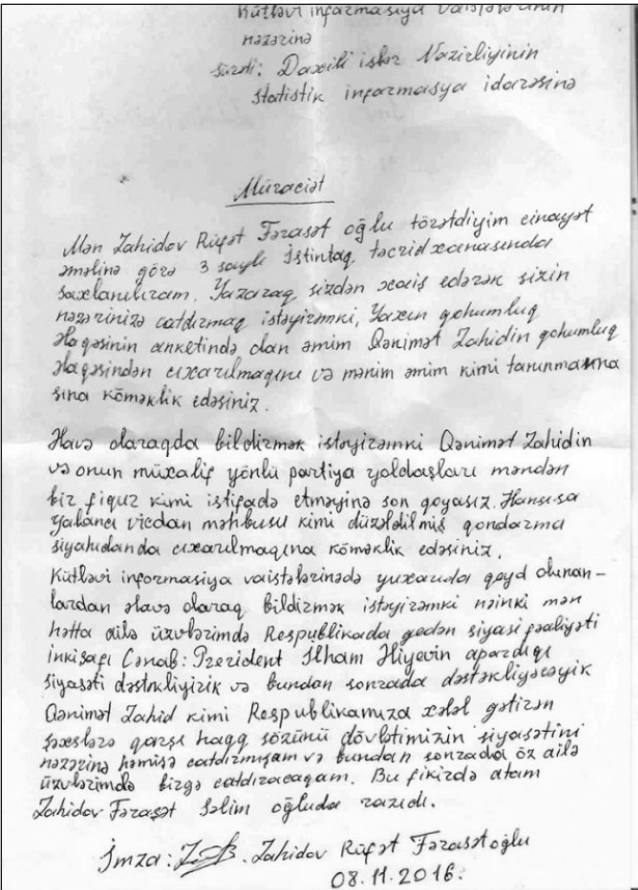 Kütləvi informasiya vaistələrinin
nəzərinə
surəti: Daxili işlər Nazirliyinin
statistik informasya idarəsinə
Müraciət
Mən Zahidov Rüfət Fərasət oğlu törətdiyim cinayət
əməlinə görə 3 saylı İstintaq təcridxanasında
saxlanılıram. Yazaraq sizdən xaiş edərək sizin
nəzərinizə catdırmaq istəyirəmki, Yaxın qohumluq
əlaqəsinin anketində olan əmim Qənimət Zahidin qohumluq
əlaqəsindən cıxarılmaqını və mənim əmim kimi tanınmasına
sına köməklik edəsiniz.
Həvə olaraqda bildirmək istəyirəmki Qənimət Zahidin
və onun müxalif yönlü partiya yoldaşları məndən
bir fiqur kimi istifadə etməyinə son qoyasız. Hansısa
yalancı vicdan məhbusu kimi düzəldilmiş qondarma
siyahıdanda cıxarılmaqına köməklik edəsiniz.
Kütləvi informasiya vaistələrinədə yuxarıda qeyd olunan-
lardan əlavə olaraq bildirmək istəyirəmki nəinki mən
hətta ailə üzvlərimdə Respublikada gedən siyasi fəaliyəti
inkişafı Cənab: Prezident İlham Əliyevin apardıqı
siyasəti dəstəkliyirik və bundan sonrada dəstəkliyəcəyik
Qənimət Zahid kimi Respublikamıza xələl gətirən
şəxslərə qarşı haqq sözünü dövlətimizin siyasətini
nəzərinə həmişə catdırmışam və bundan sonrada öz ailə
üzvlərimdə birgə catdıracaqam. Bu fikirdə atam
Zahidov Fərasət Səlim oğluda razıdı.
İmza: Zahidov Rüfət Fərasətoğlu
08.11.2016.